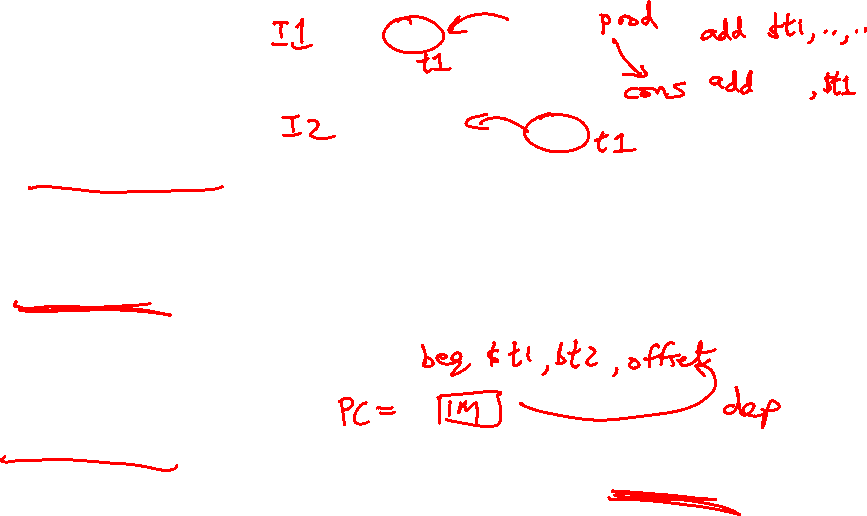 I1 t1 prod add $t1, .., ..
cons add , $t1
I2 t1
beq $t1, $t2, offset
PC = IM dep